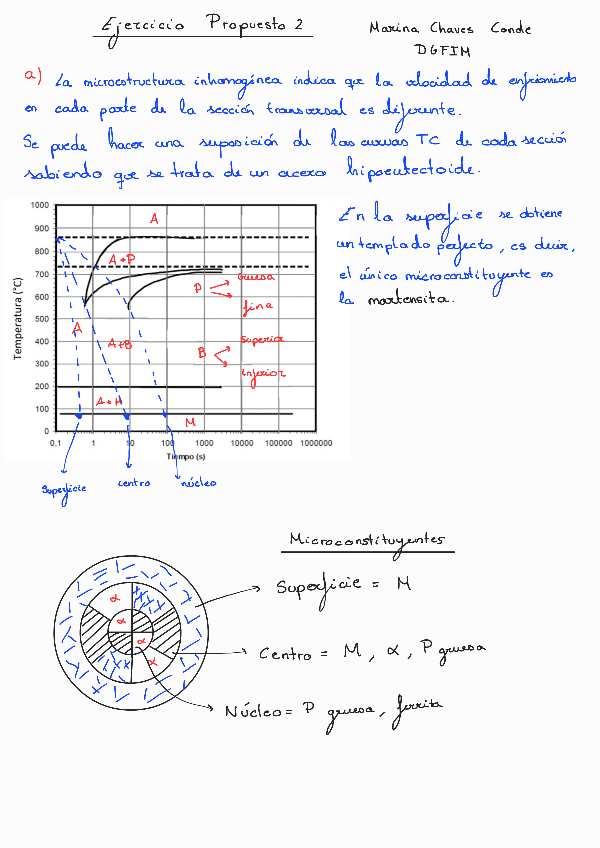 Ejercicio Propuesto 2
Marina Chaves Conde
DGFIM
a) La microestructura inhomogénea indica que la velocidad de enfriamiento
en cada parte de la sección transversal es diferente.
Se puede hacer una suposición de las curvas TC de cada sección
sabiendo que se trata de un acero hipoeutectoide.
En la superficie se obtiene
un templado perfecto, es decir,
el único microconstituyente es
la martensita.
Temperatura (°C)
1000
900
800
700
600
500
400
300
200
100
0
A
A+P
P
Gruesa
fina
A
A+B
B
Superior
inferior
A+M
M
0,1 1 10 100 1000 10000 100000 1000000
Tiempo (s)
Superficie
centro
núcleo
Microconstituyentes
α
α
α
α
Superficie = M
Centro = M, α, P gruesa
Núcleo = P gruesa, ferrita